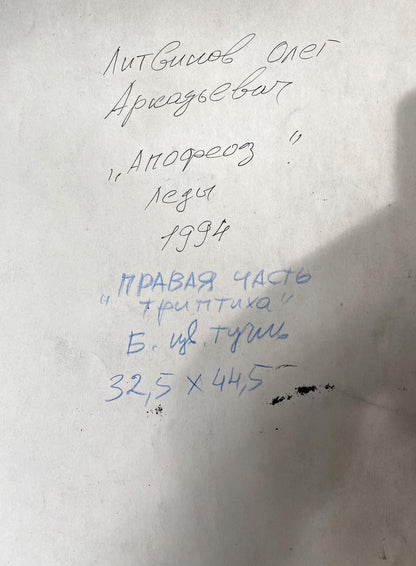 Литвинов Олег
Аркадьевич
„Апофеоз"
Леды
1994
"ПРАВАЯ ЧАСТЬ
триптиха"
Б. цв. тушь
32,5 x 44,5